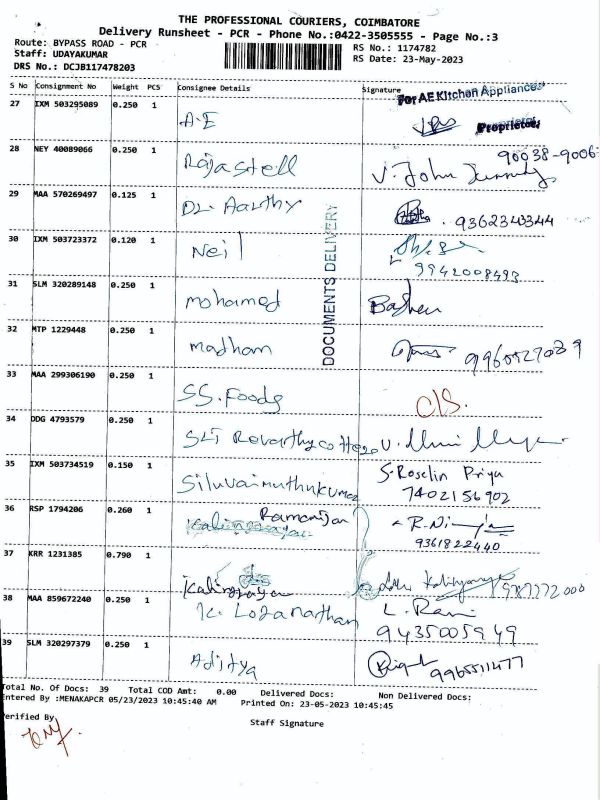 THE PROFESSIONAL COURIERS, COIMBATORE
Delivery Runsheet - PCR - Phone No.:0422-3505555 - Page No.:3
Route: BYPASS ROAD - PCR
RS No.: 1174782
Staff: UDAYAKUMAR
RS Date: 23-May-2023
DRS No.: DCJB117478203
S No Consignment No Weight PCS Consignee Details Signature
For AE Kitchen Appliances
27 IXM 503295089 0.250 1 A.E
Proprietor
28 NEY 40089066 0.250 1 Rajasteel V. John
90038-9006
29 MAA 570269497 0.125 1 Dr. Aarthy 9362343344
30 IXM 503723372 0.120 1 Neil
9942008493
DOCUMENTS DELIVERY
31 SLM 320289148 0.250 1 mohamed
32 MTP 1229448 0.250 1 madham
33 MAA 299306190 0.250 1 SS. Foods C/S.
34 DDG 4793579 0.250 1 Sri
35 IXM 503734519 0.150 1 Siluvaimuthukumar S. Roselin Priya
7402156902
36 RSP 1794206 0.260 1
9361822440
37 KRR 1231385 0.790 1
38 MAA 859672240 0.250 1 K. Loganathan L. Rani
9435005949
39 SLM 320297379 0.250 1 Aditya 9965511477
Total No. Of Docs: 39 Total COD Amt: 0.00 Delivered Docs: Non Delivered Docs:
Entered By :MENAKAPCR 05/23/2023 10:45:40 AM Printed On: 23-05-2023 10:45:45
Verified By
Staff Signature